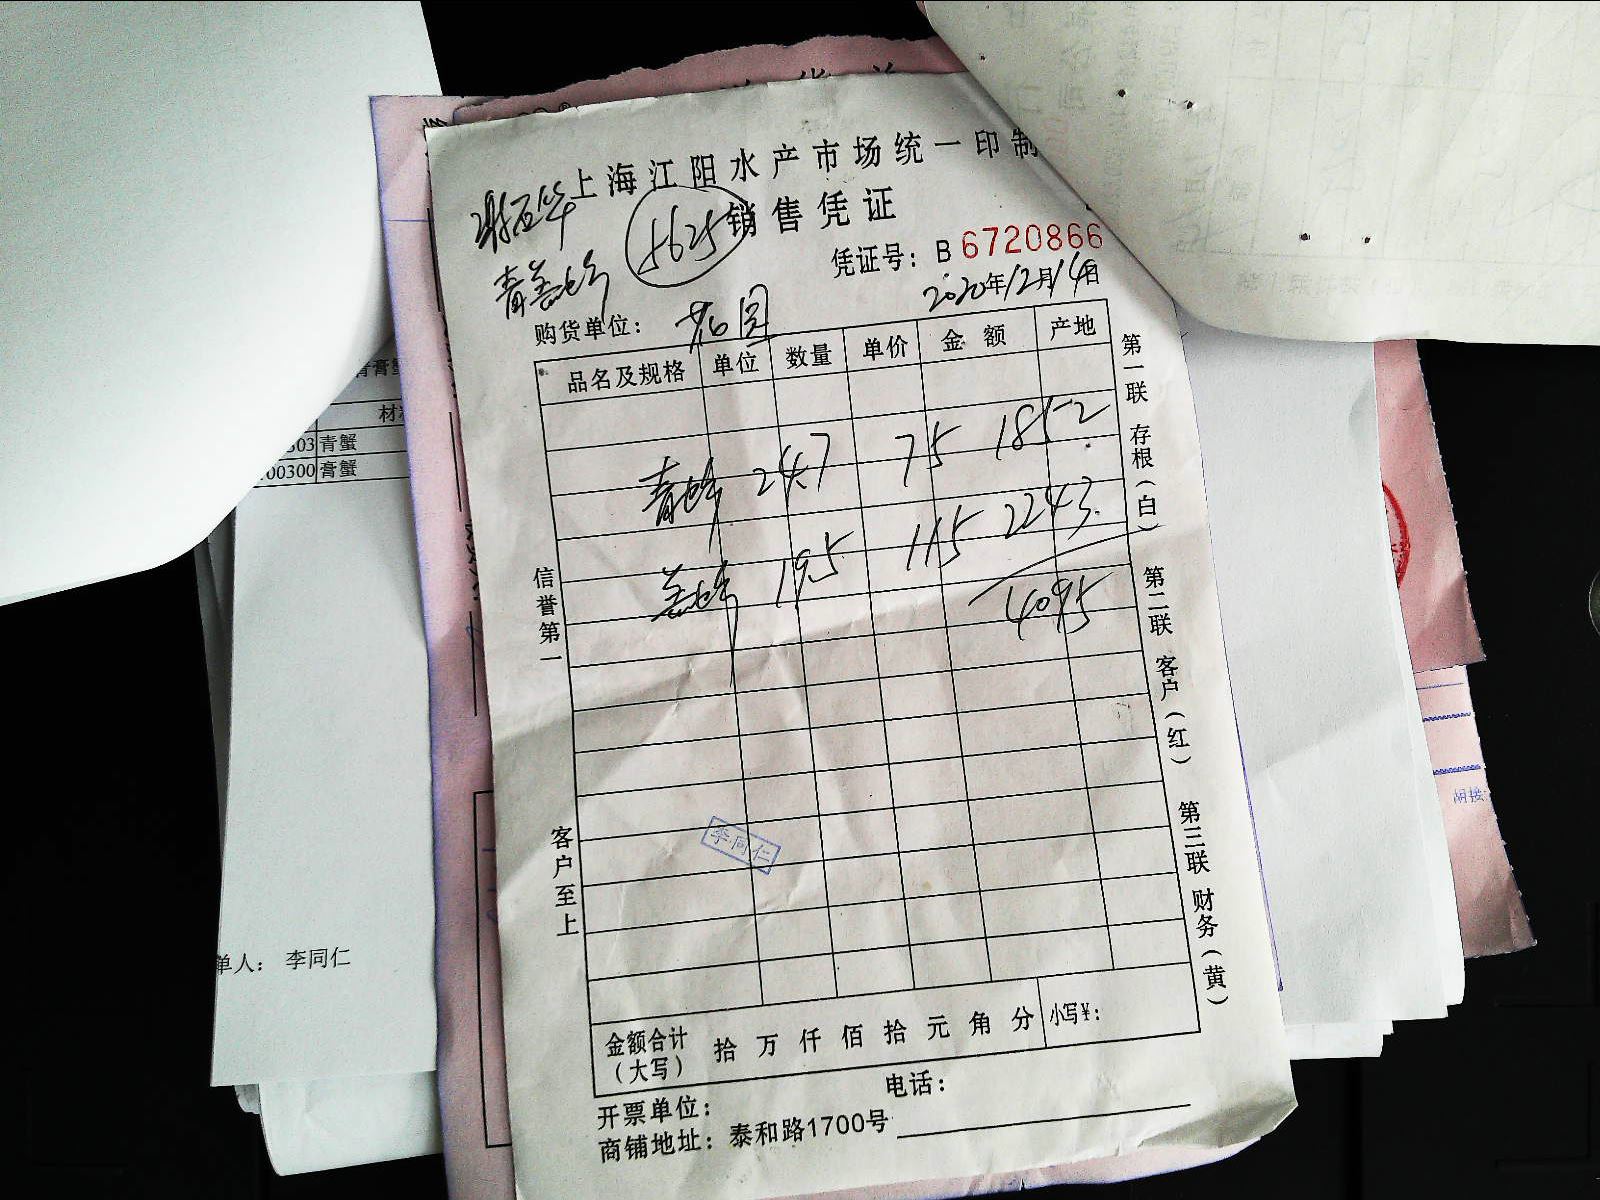 上海江阳水产市场统一印制
5625
销售凭证
凭证号：B 6720866
2020年12月14日
购货单位：
品名及规格 单位 数量 单价 金额 产地
青蟹 24.7 75 1852.
膏蟹 19.5 115 2243.
4095
金额合计（大写） 拾 万 仟 佰 拾 元 角 分 小写¥：
电话：
开票单位：
商铺地址：泰和路1700号
信誉第一
客户至上
第一联 存根（白）
第二联 客户（红）
第三联 财务（黄）
李同仁
303 青蟹
00300 膏蟹
单人： 李同仁